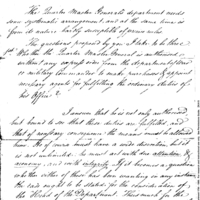 This Quarter Master Generals department needs
some systematic arrangement, and at the same time is
from its nature hardly susceptible of
The questions proposed by you I take to be these
1st Whether the Quarter Master General is authorised
without any express from the department of War
or military commander to make purchases & appoint
necessary agents for fulfilling the ordinary duties of
his office?
I answer that he is not only authorised
but bound to see that these duties are fulfilled, and
that of necessary consequence the means must be allowed
him. He of course must have a wide discretion, but it
is not unbounded. He must act with due attention &
economy, and with integrity. If it becomes a question
whether either of these has been wanting in any instance
the case ought to be stated for the consideration of
the Head of the Department. Thus much for the